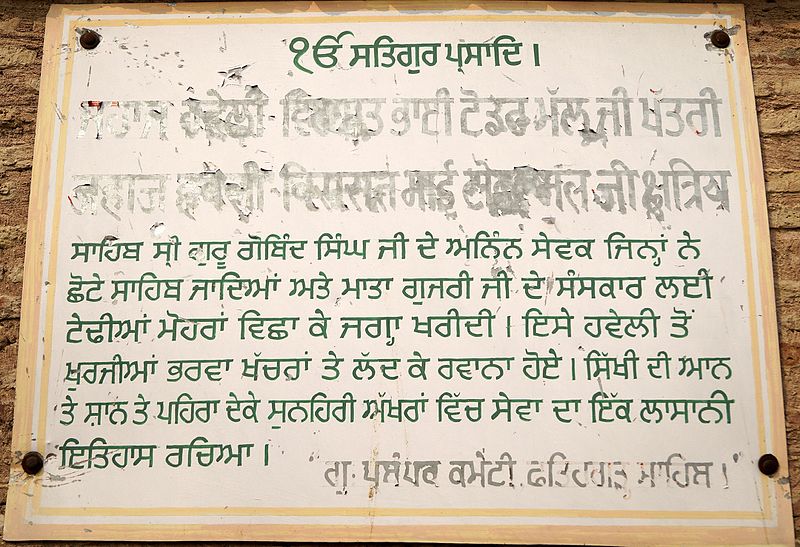 ੴ ਸਤਿਗੁਰ ਪ੍ਰਸਾਦਿ।
ਜਹਾਜ ਹਵੇਲੀ ਭਾਈ ਟੋਡਰ ਮੱਲ ਜੀ ਖੱਤਰੀ
जहाज हवेली भाई टोडर मल जी क्षत्रिय
ਸਾਹਿਬ ਸ੍ਰੀ ਗੁਰੂ ਗੋਬਿੰਦ ਸਿੰਘ ਜੀ ਦੇ ਅਨਿੰਨ ਸੇਵਕ ਜਿਨ੍ਹਾਂ ਨੇ
ਛੋਟੇ ਸਾਹਿਬ ਜਾਦਿਆਂ ਅਤੇ ਮਾਤਾ ਗੁਜਰੀ ਜੀ ਦੇ ਸੰਸਕਾਰ ਲਈ
ਟੇਢੀਆਂ ਮੋਹਰਾਂ ਵਿਛਾ ਕੇ ਜਗ੍ਹਾ ਖਰੀਦੀ। ਇਸੇ ਹਵੇਲੀ ਤੋਂ
ਖੁਰਜੀਆਂ ਭਰਵਾ ਖੱਚਰਾਂ ਤੇ ਲੱਦ ਕੇ ਰਵਾਨਾ ਹੋਏ। ਸਿੱਖੀ ਦੀ ਆਨ
ਤੇ ਸ਼ਾਨ ਤੇ ਪਹਿਰਾ ਦੇਕੇ ਸੁਨਹਿਰੀ ਅੱਖਰਾਂ ਵਿੱਚ ਸੇਵਾ ਦਾ ਇੱਕ ਲਾਸਾਨੀ
ਇਤਿਹਾਸ ਰਚਿਆ।
ਗੁ. ਪ੍ਰਬੰਧਕ ਕਮੇਟੀ, ਫਤਿਹਗੜ ਸਾਹਿਬ।